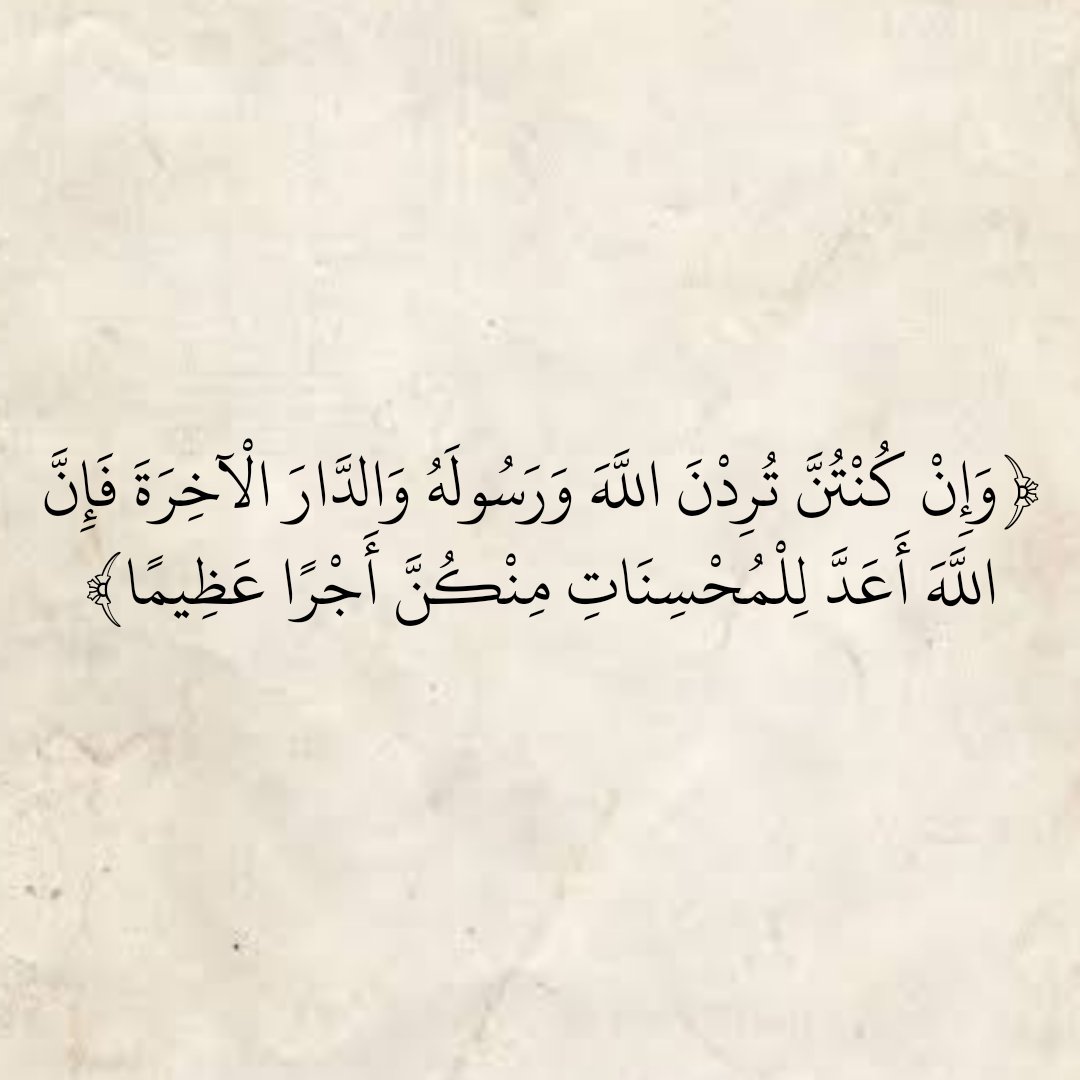 ﴿وَإِنْ كُنْتُنَّ تُرِدْنَ اللَّهَ وَرَسُولَهُ وَالدَّارَ الْآخِرَةَ فَإِنَّ
اللَّهَ أَعَدَّ لِلْمُحْسِنَاتِ مِنْكُنَّ أَجْرًا عَظِيمًا﴾